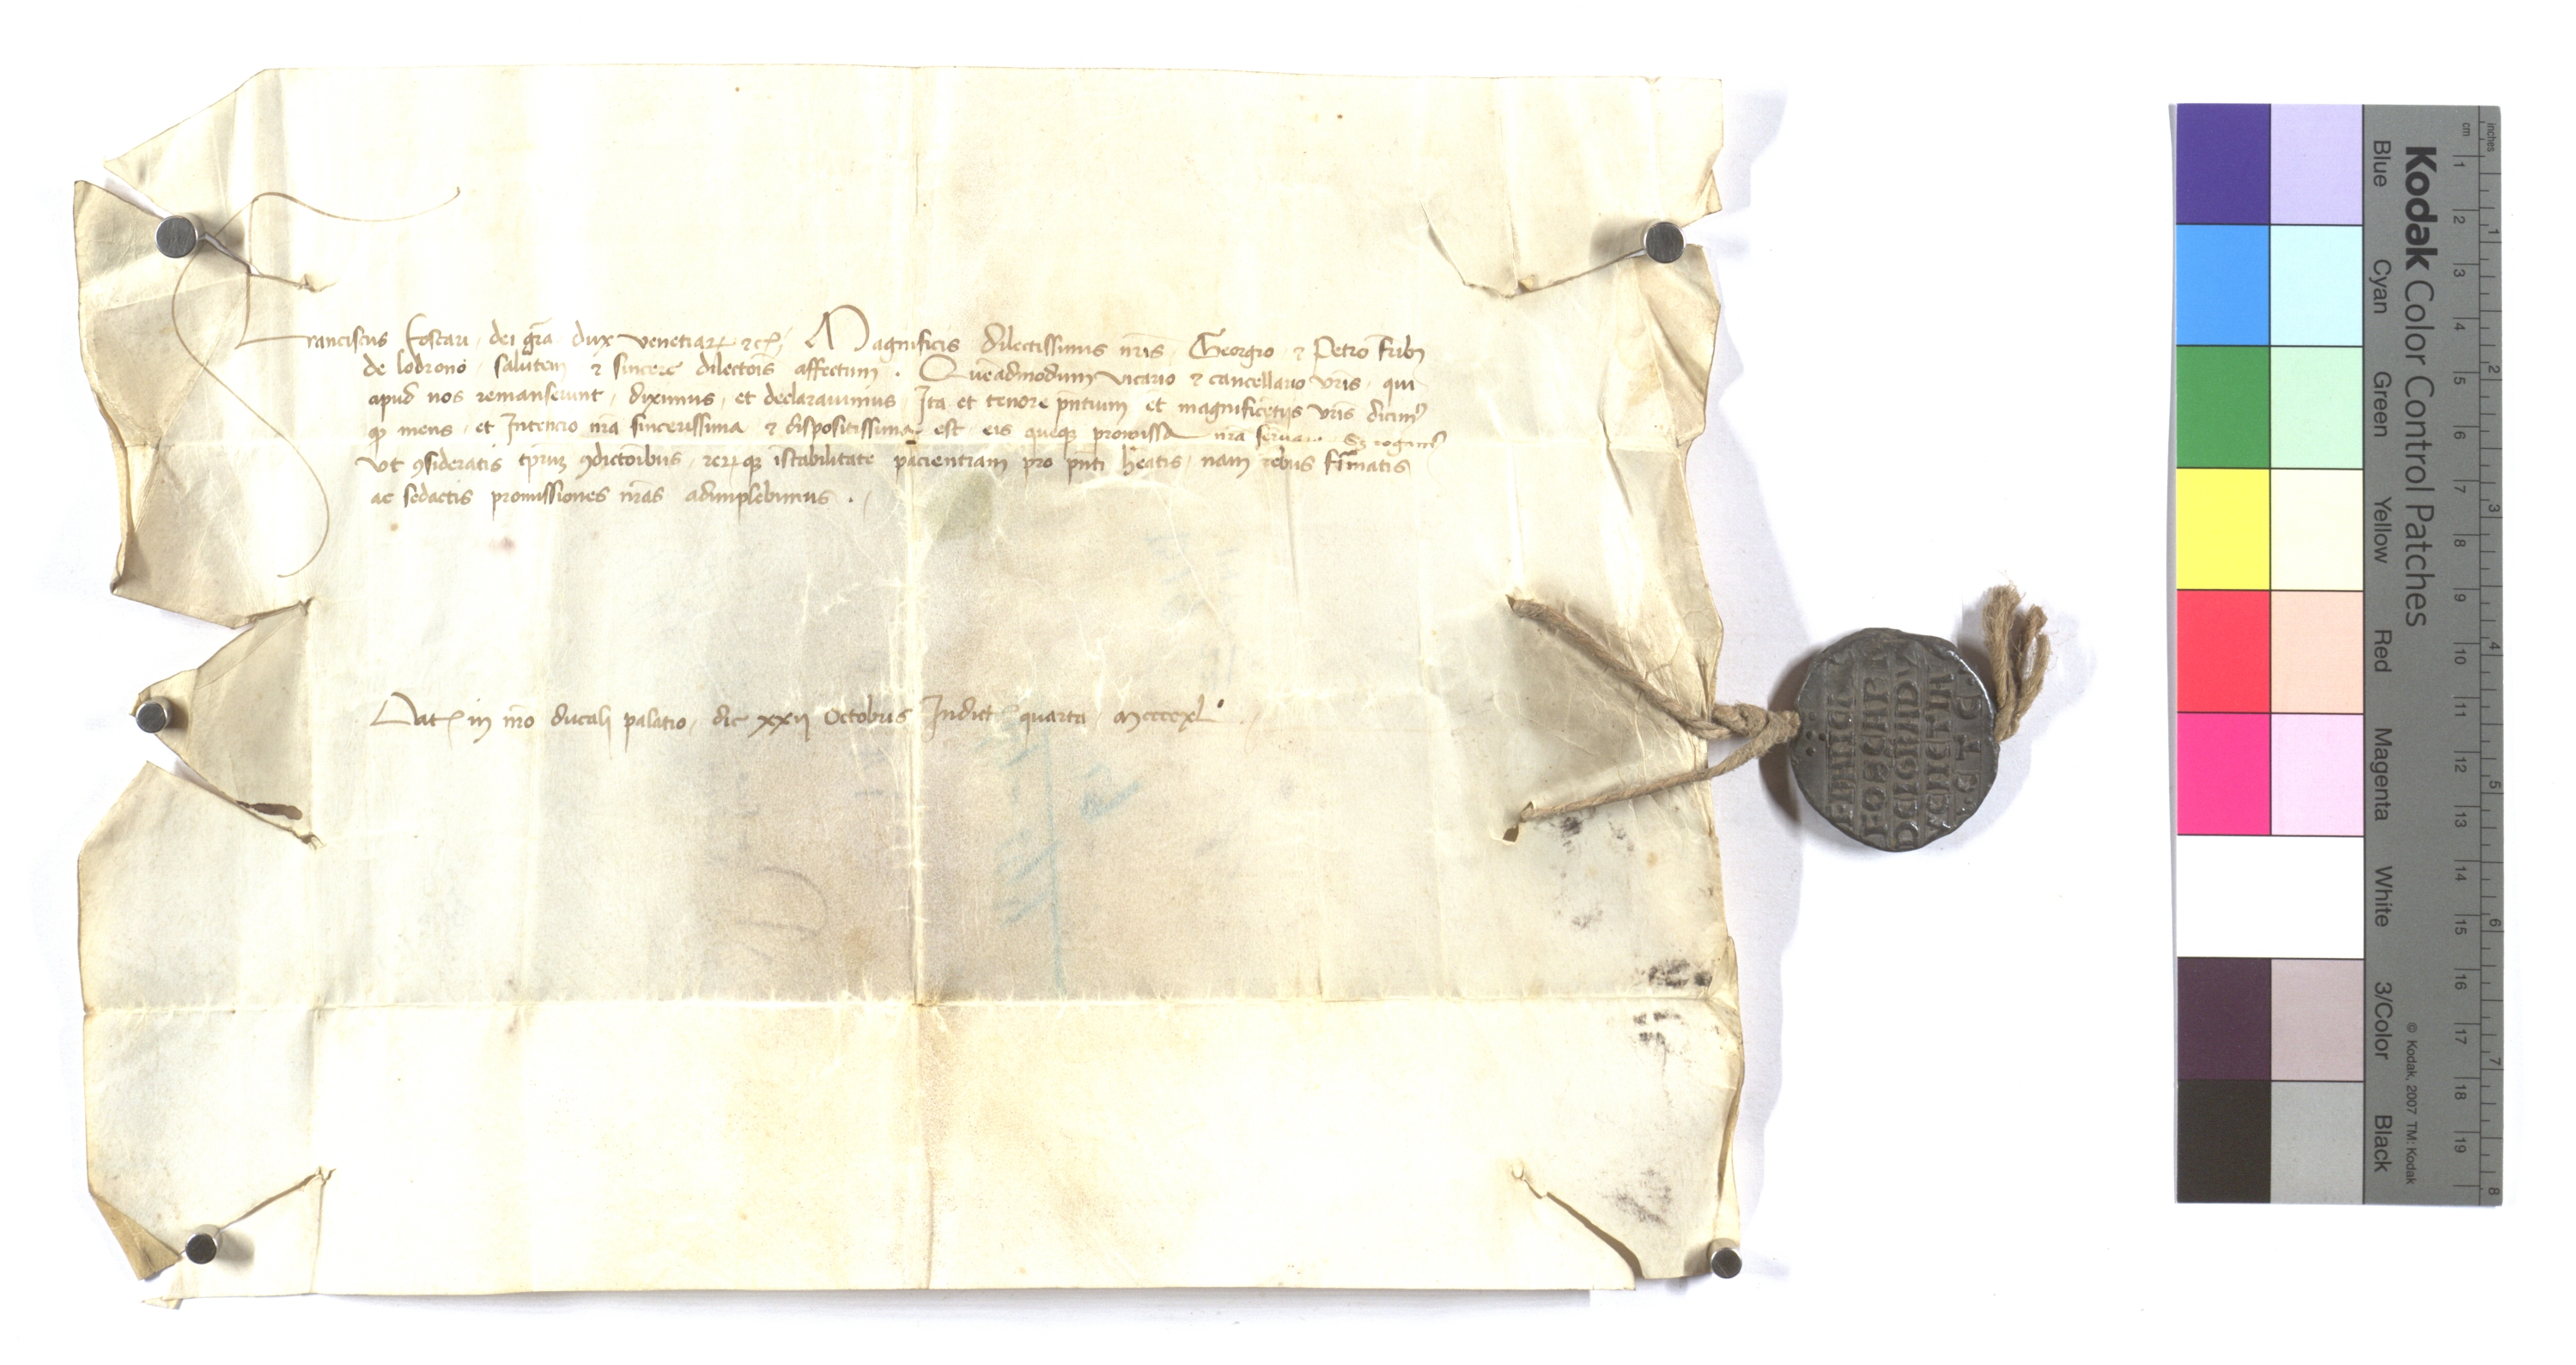 Franciscus Foscari dei gr̄a dux Venetiarꝝ ⁊cꝭ. Magnificis dilectissimis nr̄is Georgio ⁊ Petro fr̄ibꝫ
de lodrono salutem ⁊ sincere dilectōis affectum. Quēadmodum vicario ⁊ cancellario vr̄is qui
apud nos remanserunt, diximus, et declarauimus Ita et tenore pn̄tium et magnificētijs vr̄is dicimꝰ
ꝙ mens et Intencio nr̄a sincerissima ⁊ dispositissima est eis queqꝫ promissa nr̄a seruare Sꝫ rogamꝰ
Vt ꝯsideratis tp̄rum ꝯdictōibus rerꝝqꝫ īstabilitate pacientiam pro pn̄ti hēatis nam rebus firmatis
ac sedactis promissiones nr̄as adimplebimus.
Datꝭ in nr̄o ducali palatio die xxij Octobris Indictꝭ quarta mccccxlº
FRANCISC
FOSCARI
DEI GRA DV
VENETIA
Kodak Color Control Patches
Blue Cyan Green Yellow Red Magenta White 3/Color Black
© Kodak, 2007 TM: Kodak
inches 1 2 3 4 5 6 7 8
cm 1 2 3 4 5 6 7 8 9 10 11 12 13 14 15 16 17 18 19